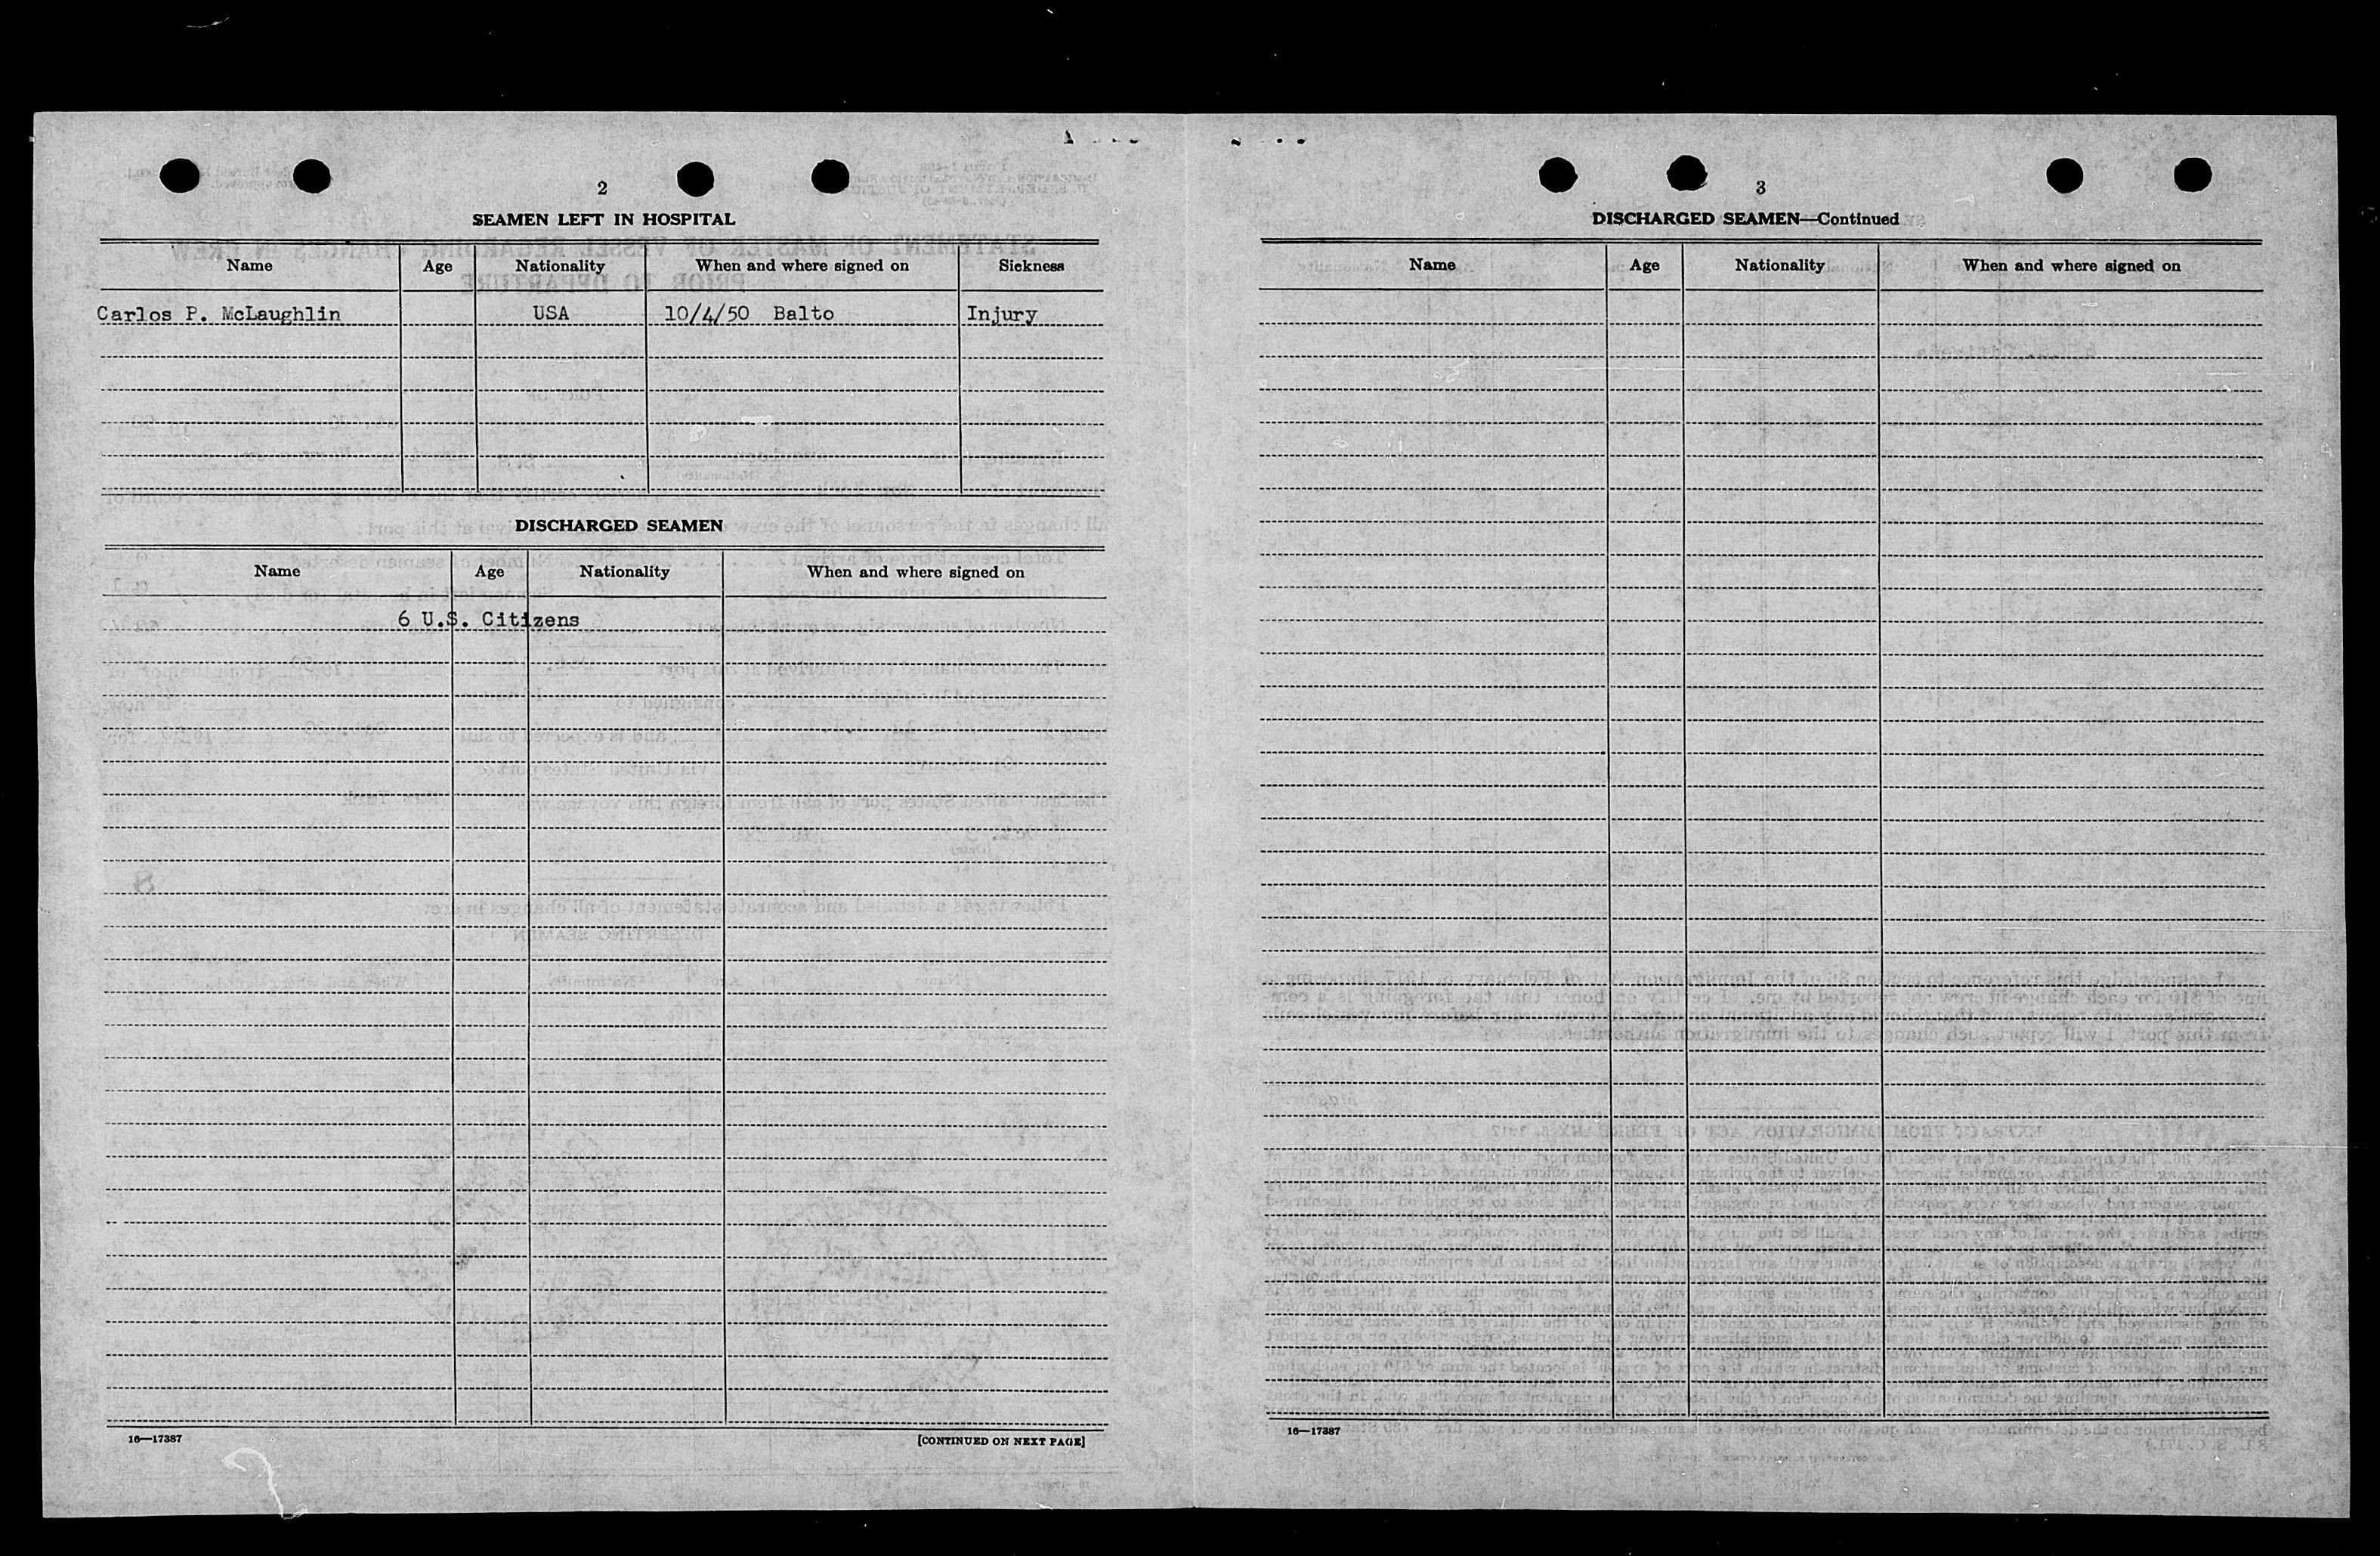 2
SEAMEN LEFT IN HOSPITAL
Name Age Nationality When and where signed on Sickness
Carlos P. McLaughlin USA 10/4/50 Balto Injury
DISCHARGED SEAMEN
Name Age Nationality When and where signed on
6 U.S. Citizens
16—17387 [CONTINUED ON NEXT PAGE]
3
DISCHARGED SEAMEN—Continued
Name Age Nationality When and where signed on
16—17387